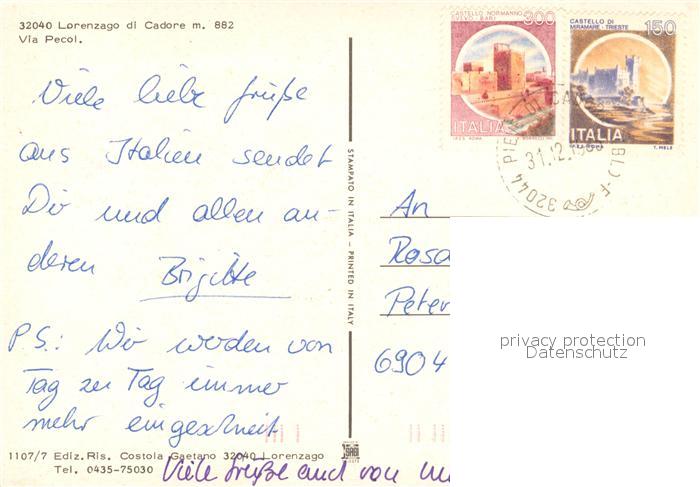 32040 Lorenzago di Cadore m. 882
Via Pecol.
Viele liebe Grüße
aus Italien sendet
Dir und allen an-
deren Brigitte
P.S.: Wir werden von
Tag zu Tag immer
mehr eingeschneit
1107/7 Ediz. Ris. Costola Gaetano 32040 Lorenzago
Tel. 0435-75030
Viele Grüße auch von
STAMPATO IN ITALIA - PRINTED IN ITALY
CASTELLO NORMANNO
SVEVO - BARI 300
ITALIA
I.P.Z.S. ROMA
CASTELLO DI
MIRAMARE - TRIESTE 150
ITALIA
I.P.Z.S. ROMA T. MELE
32044 PIEVE DI CAD (BL)
31.12.
An
Rosa
Peter
6904
privacy protection
Datenschutz